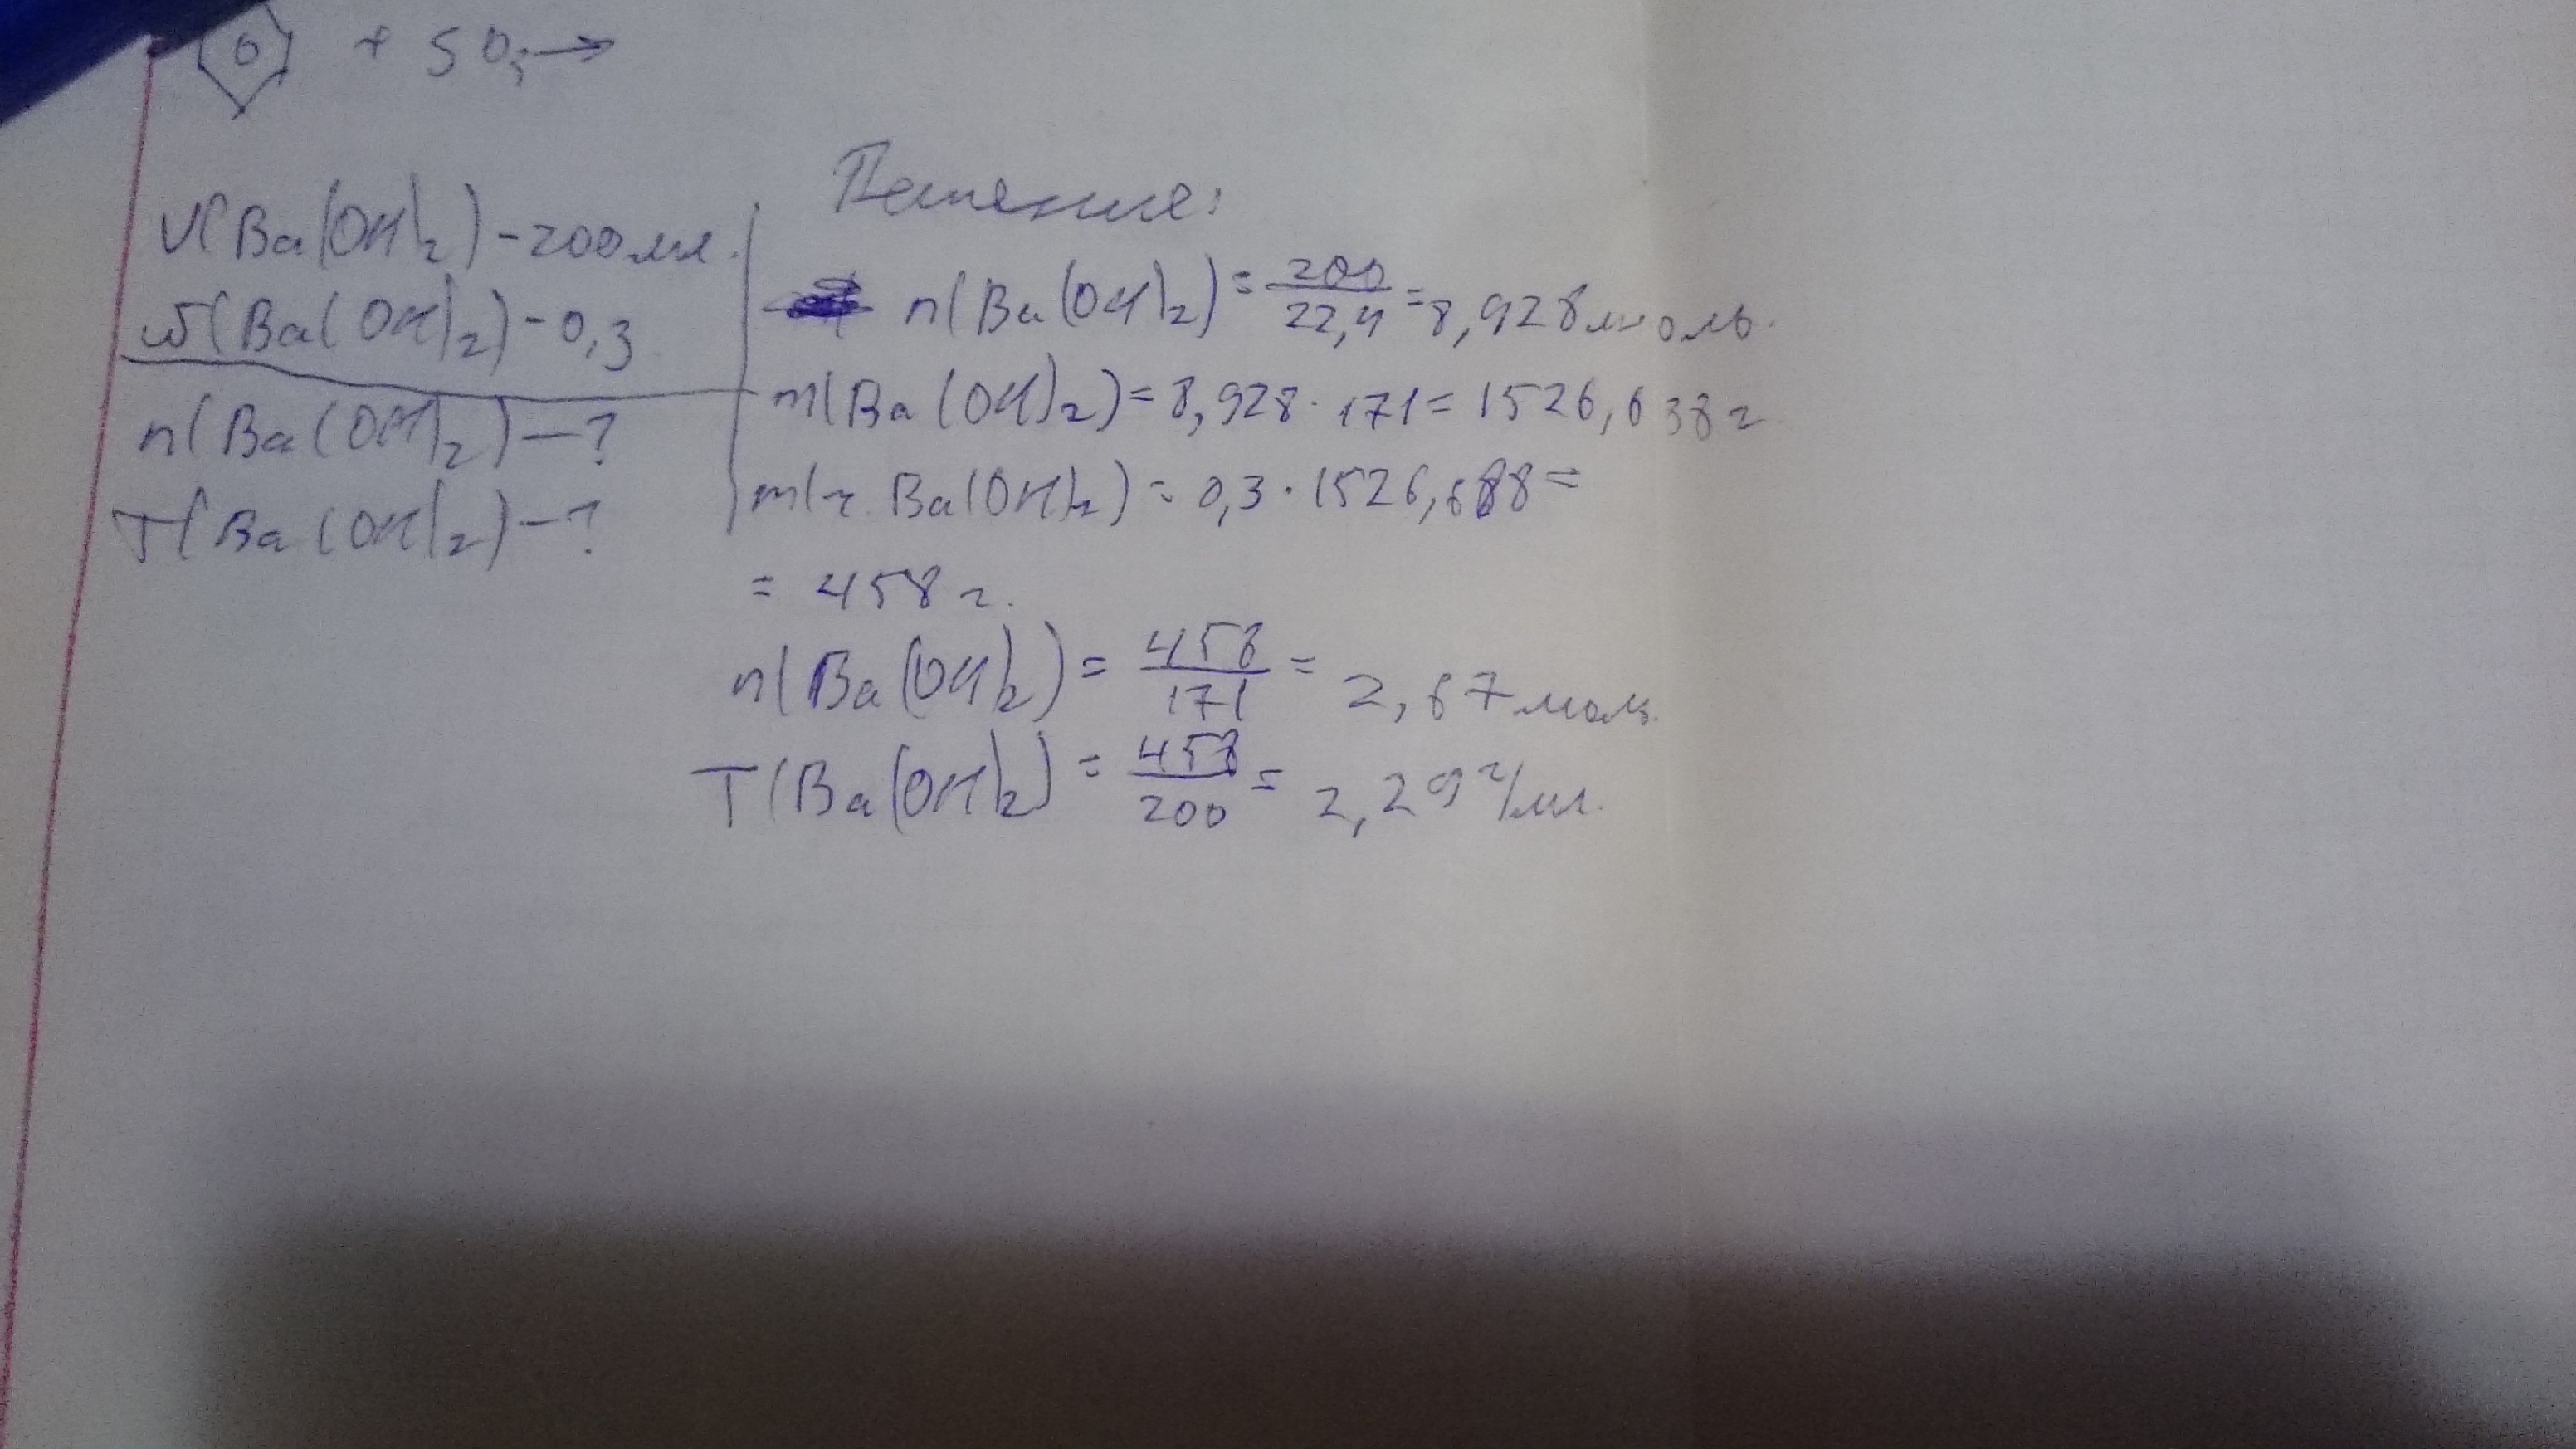 + SO₃ →
V(Ba(OH)₂) - 200 мл.
ω(Ba(OH)₂) - 0,3
n(Ba(OH)₂) - ?
T(Ba(OH)₂) - ?
Решение:
n(Ba(OH)₂) = 200/22,4 = 8,928 моль.
m(Ba(OH)₂) = 8,928 · 171 = 1526,638 г
m(ч. Ba(OH)₂) = 0,3 · 1526,688 =
= 458 г.
n(Ba(OH)₂) = 458/171 = 2,67 моль
T(Ba(OH)₂) = 458/200 = 2,29 г/мл.